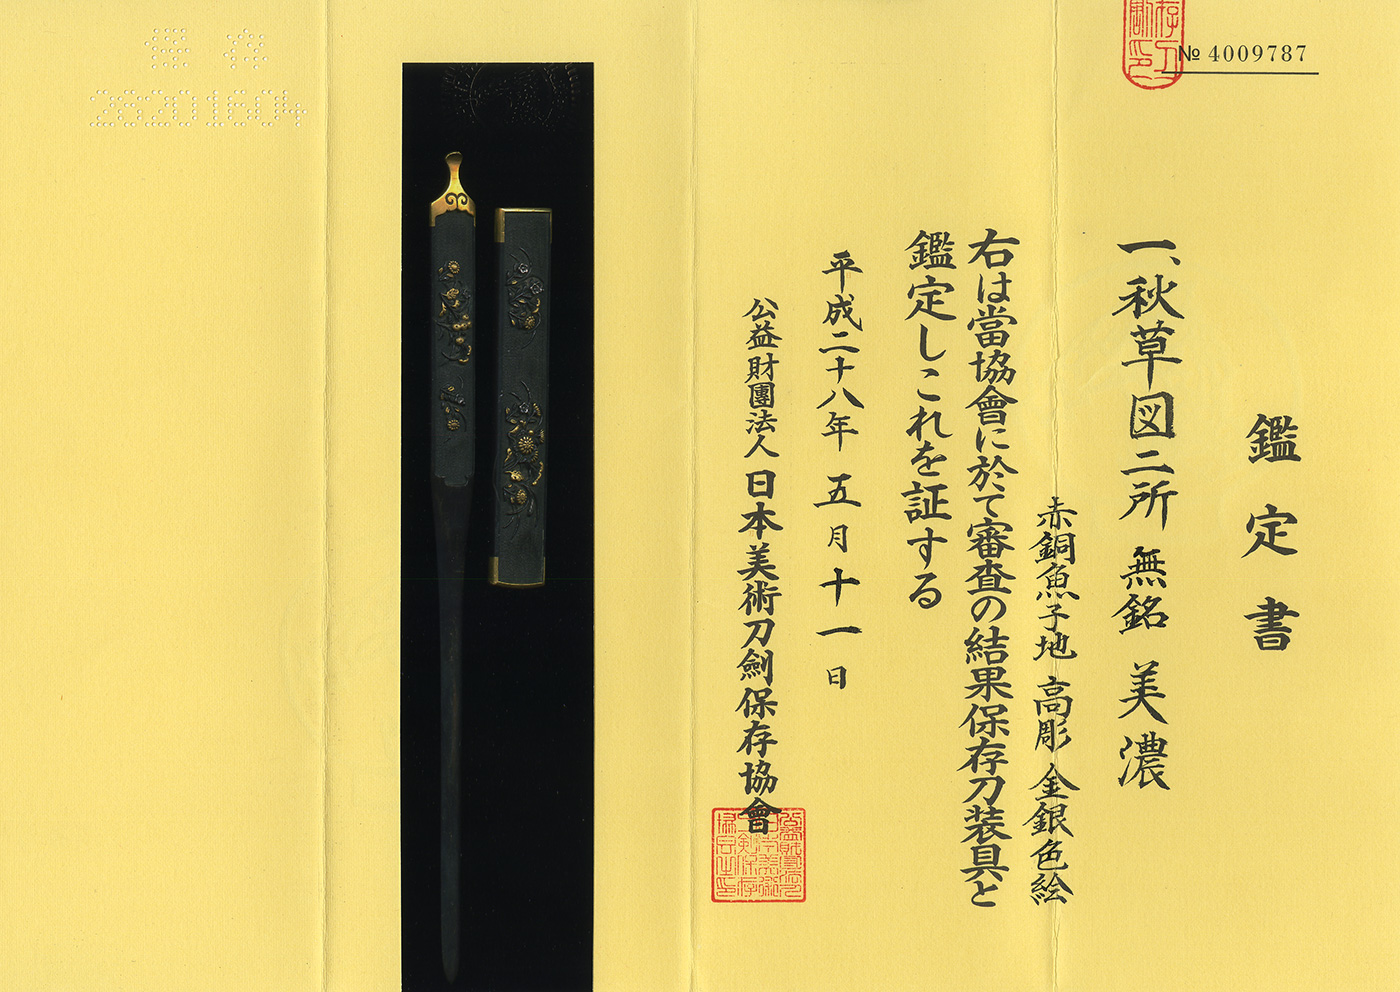 № 4009787
鑑定書
一、秋草図二所 無銘 美濃
赤銅魚子地 高彫 金銀色絵
右は當協會に於て審査の結果保存刀装具と
鑑定しこれを証する
平成二十八年 五月 十一日
公益財團法人 日本美術刀劍保存協會
保存
26201604